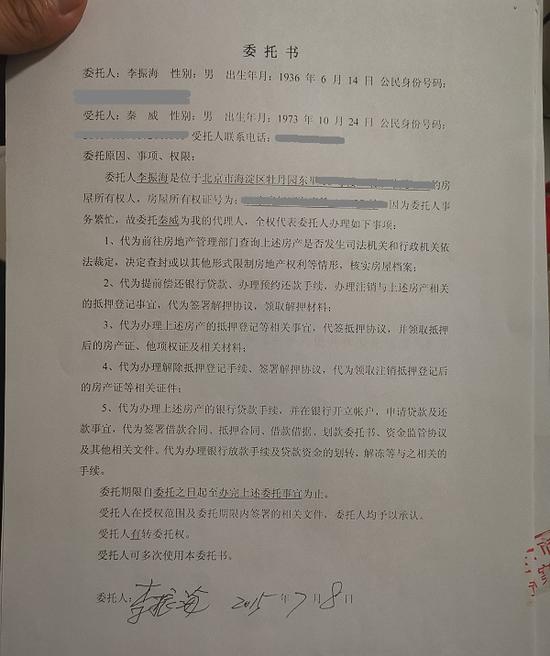 委托书
委托人：李振海 性别：男 出生年月：1936 年 6 月 14 日 公民身份号码：
受托人：秦 威 性别：男 出生年月：1973 年 10 月 24 日 公民身份号码：
受托人联系电话：
委托原因、事项、权限：
委托人李振海是位于北京市海淀区牡丹园东里 的房
屋所有权人，房屋所有权证号为： 因为委托人事
务繁忙，故委托秦威为我的代理人，全权代表委托人办理如下事项：
1、代为前往房地产管理部门查询上述房产是否发生司法机关和行政机关依
法裁定，决定查封或以其他形式限制房地产权利等情形，核实房屋档案；
2、代为提前偿还银行贷款、办理预约还款手续，办理注销与上述房产相关
的抵押登记事宜，代为签署解押协议，领取解押材料；
3、代为办理上述房产的抵押登记等相关事宜，代签抵押协议，并领取抵押
后的房产证、他项权证及相关材料；
4、代为办理解除抵押登记手续、签署解押协议，代为领取注销抵押登记后
的房产证等相关证件；
5、代为办理上述房产的银行贷款手续，并在银行开立帐户，申请贷款及还
款事宜，代为签署借款合同、抵押合同、借款借据、划款委托书、资金监管协议
及其他相关文件，代为办理银行放款手续及贷款资金的划转，解冻等与之相关的
手续。
委托期限自委托之日起至办完上述委托事宜为止。
受托人在授权范围及委托期限内签署的相关文件，委托人均予以承认。
受托人有转委托权。
受托人可多次使用本委托书。
委托人：李振海 2015 年 7 月 8 日